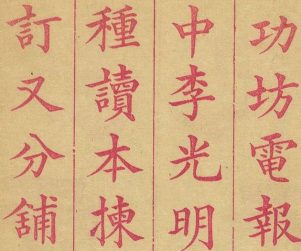 功坊電報
中李光明
種讀本揀
訂又分舖